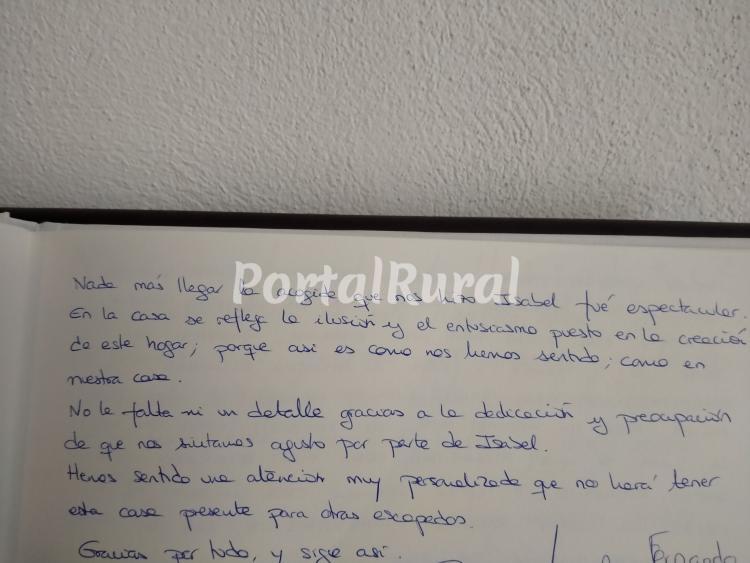 Nada más llegar la acogida que nos hizo Isabel fué espectacular.
PortalRural
En la casa se refleja la ilusión y el entusiasmo puesto en la creación
de este hogar; porque asi es como nos hemos sentido; como en
nuestra casa.
No le falta ni un detalle gracias a la dedicación y preocupación
de que nos sintamos agusto por parte de Isabel.
Hemos sentido una atención muy personalizada que nos hará tener
esta casa presente para otras escapadas.
Gracias por todo, y sigue así.
Fernando